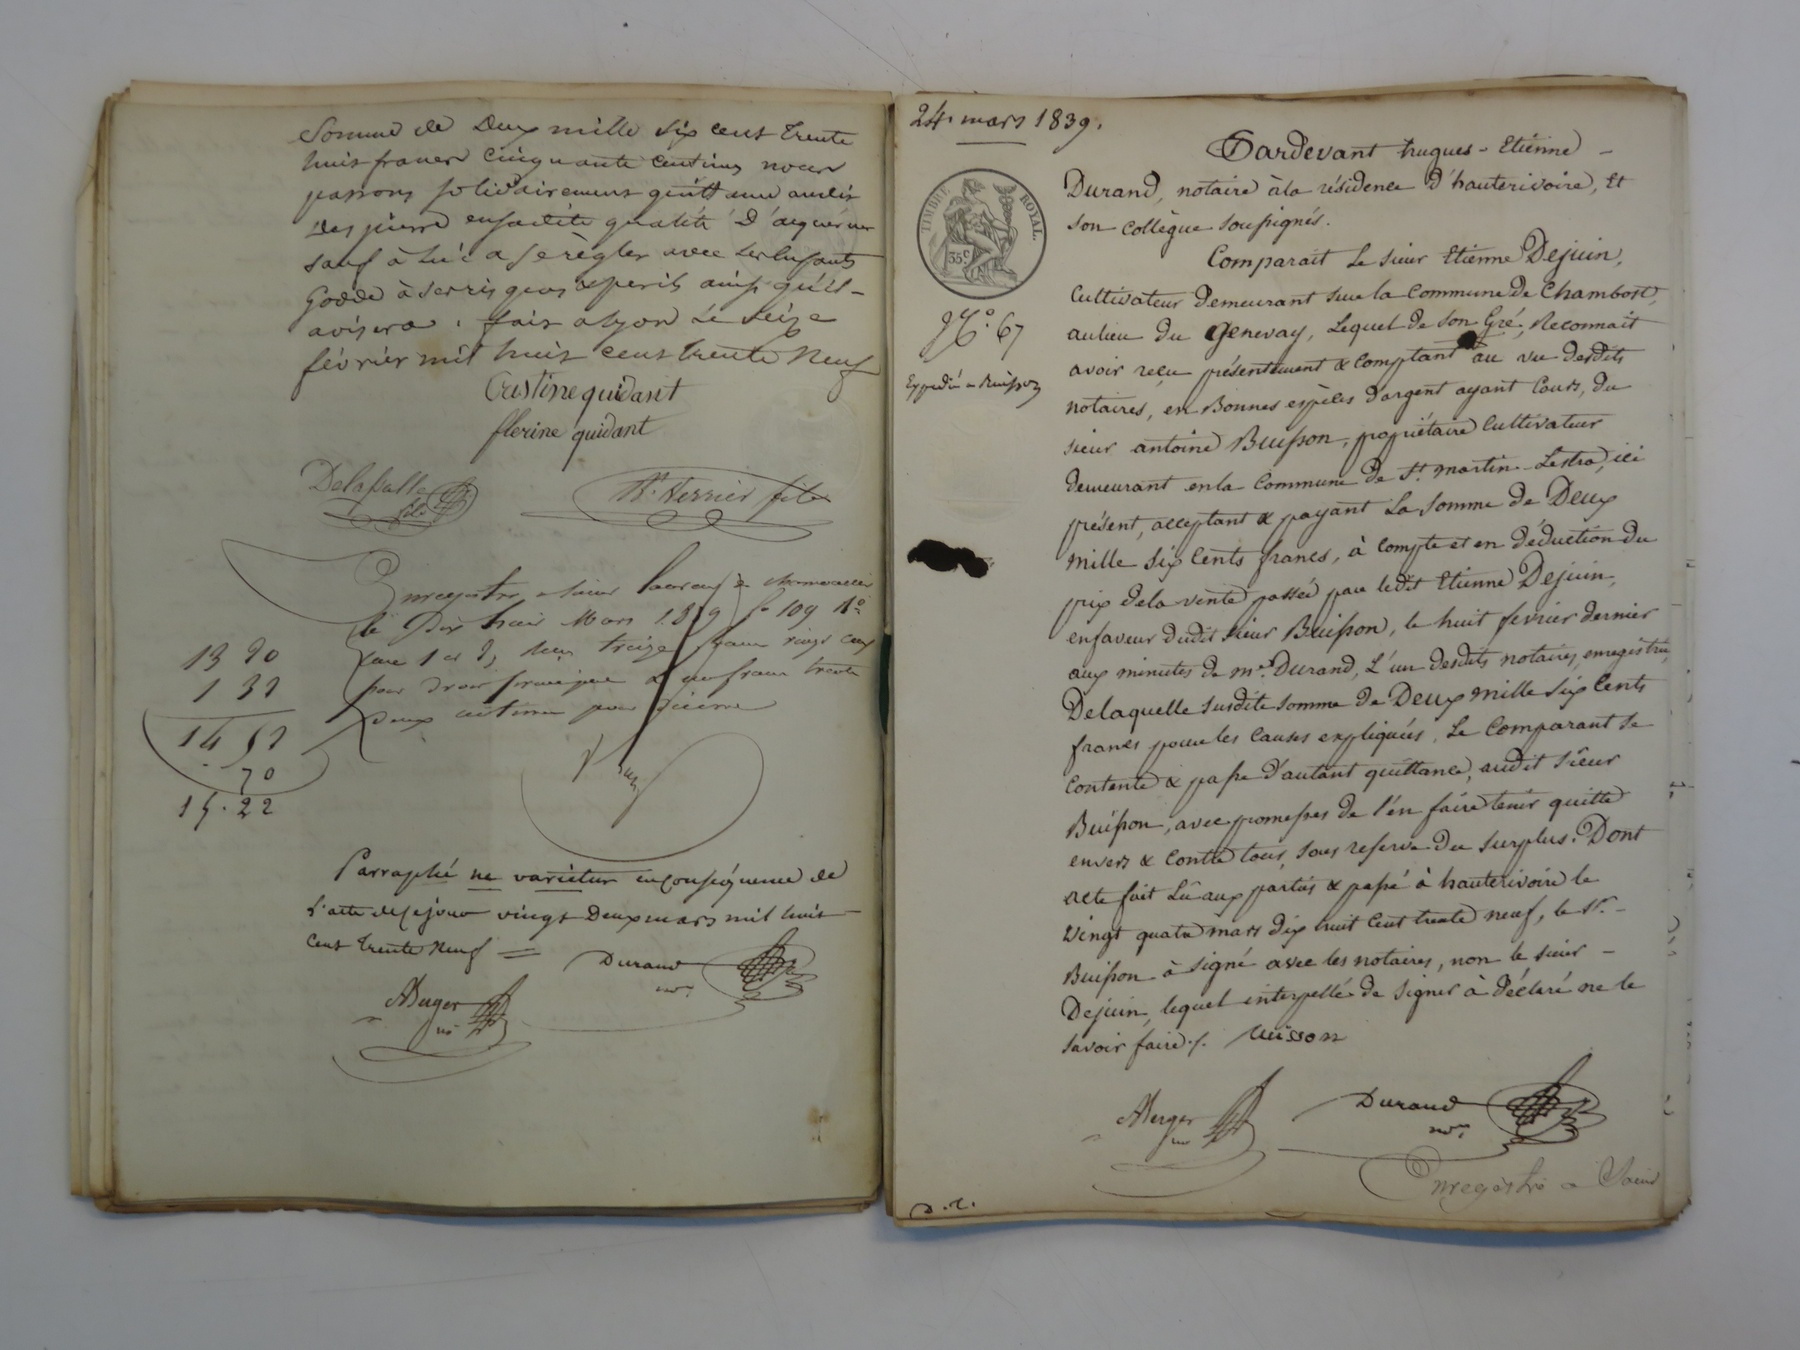 Somme de Deux mille six cent trente
huit francs cinquante centimes nous
passons solidairement quittance audit
Des pierre ensadite qualité D'acquéreur
sauf à lui a se règler avec les Enfants
Godde à ses risques & perils ainsi qu'il
avisera . fait a Lyon Le Seize
février mil huit cent trente Neuf
Cristine quidant
florine quidant
Delasalle fils
Vernier fils
Enregistré a
le Dix huit Mars 1839 fo 109 Ro
Case 1 et 2, Reçu treize francs vingt
pour droit principal & un franc trente
Deux centimes pour Dixième
13 20
1 32
14 52
70
15.22
Parraphé ne varietur en conséquence de
L'acte de ce jour vingt Deux mars mil huit
cent trente Neuf
Durand
nore
Muger
no
24 mars 1839.
TIMBRE ROYAL.
35 c
No. 67
Expedié a Buisson
Pardevant hugues - Etiénne
Durand, notaire à la résidence d'hauterivoire, Et
son collègue soussignés.
Comparait Le sieur Etiénne Dejuin,
Cultivateur demeurant sur la Commune de Chambost,
au lieu du Genevay, Lequel de son Gré, Reconnait
avoir reçu présentement & comptant au vu desdits
notaires, en Bonnes espèces d'argent ayant Cours, du
sieur antoine Buisson, propriétaire Cultivateur
demeurant en la Commune de St. martin - Lestra, ici
présent, acceptant & payant La somme de Deux
mille six Cents francs, à compte et en déduction du
prix de la vente passée par ledit Etienne Dejuin,
en faveur dudit sieur Buisson, le huit fevrier dernier
aux minutes de me. Durand, L'un desdits notaires, enregistrée,
De laquelle susdite somme de Deux mille six Cents
francs pour les causes expliquées, Le Comparant se
contente & passe d'autant quittance, audit sieur
Buisson, avec promesses de l'en faire tenir quitte
envers & contre tous, sous reserve du surplus. Dont
acte fait Lû aux parties & passé à hauterivoire le
vingt quatre mars dix huit cent trente neuf, le Sr.
Buisson à signé avec les notaires, non le sieur
Dejuin, lequel interpellé de signer à déclaré ne le
savoir faire /. Buisson
Muger
no
Durand
nore
Enregistré a
D. L.